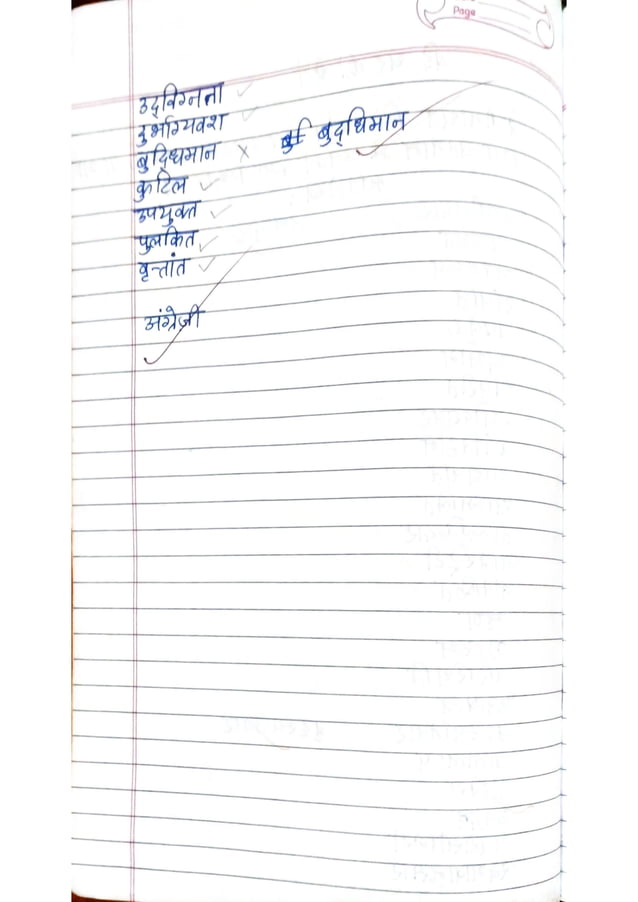 Page
उद्विग्नता
दुर्भाग्यवश
बुद्धिमान × बुद्धिमान
कुटिल
उपयुक्त
पुलकित
वृत्तांत
अंग्रेज़ी